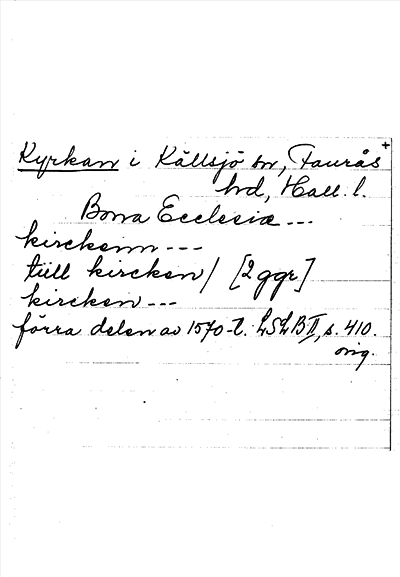 Kyrkan i Källsjö sn, Faurås +
hd, Hall. l.
Bona Ecclesia ---
kirckenn ---
tiill kircken / [2 ggr]
kircken ---
förra delen av 1570-t. LSLB II, s. 410.
orig.